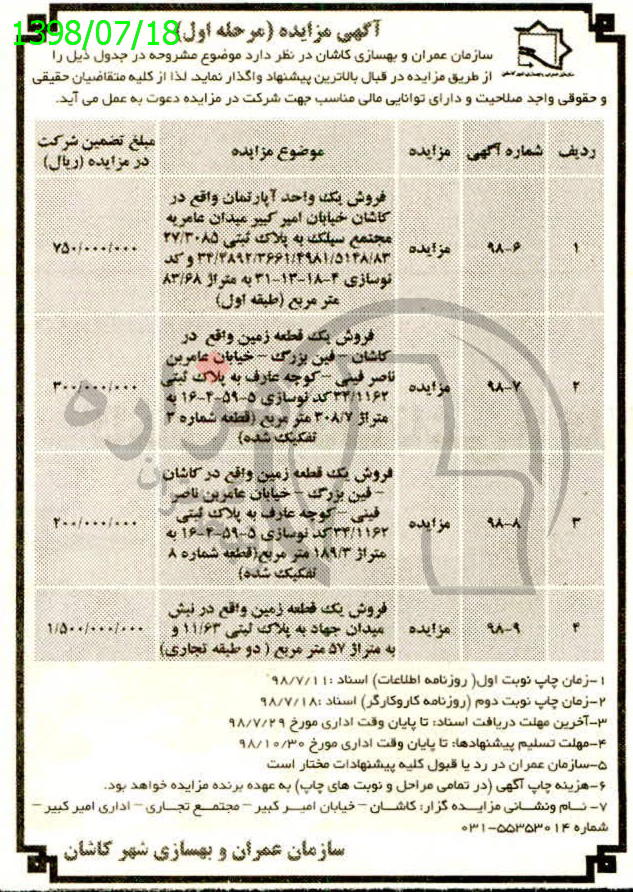 1398/07/18
آگهی مزایده (مرحله اول)
سازمان عمران و بهسازی کاشان در نظر دارد موضوع مشروحه در جدول ذیل را
از طریق مزایده در قبال بالاترین پیشنهاد واگذار نماید. لذا از کلیه متقاضیان حقیقی
و حقوقی واجد صلاحیت و دارای توانایی مالی مناسب جهت شرکت در مزایده دعوت به عمل می آید.
ردیف شماره آگهی مزایده موضوع مزایده مبلغ تضمین شرکت
در مزایده (ریال)
فروش یک واحد آپارتمان واقع در
کاشان خیابان امیر کبیر میدان عامریه
مجتمع سیلک به پلاک ثبتی ۲۷/۳۰۸۵
۱ ۹۸-۶ مزایده ۳۴/۲۸۹۲/۳۶۶۱/۴۹۸۱/۵۱۴۸/۸۳ و کد ۷۵۰/۰۰۰/۰۰۰
نوسازی ۴-۱۸-۱۳-۳۱ به متراژ ۸۳/۶۸
متر مربع (طبقه اول)
فروش یک قطعه زمین واقع در
کاشان – فین بزرگ – خیابان عامربن
ناصر فینی – کوچه عارف به پلاک ثبتی
۲ ۹۸-۷ مزایده ۳۴/۱۱۶۲ کد نوسازی ۵-۵۹-۴-۱۶ به ۳۰۰/۰۰۰/۰۰۰
متراژ ۳۰۸/۷ متر مربع (قطعه شماره ۳
تفکیک شده)
فروش یک قطعه زمین واقع در کاشان
– فین بزرگ – خیابان عامربن ناصر
فینی – کوچه عارف به پلاک ثبتی
۳ ۹۸-۸ مزایده ۳۴/۱۱۶۲ کد نوسازی ۵-۵۹-۴-۱۶ به ۲۰۰/۰۰۰/۰۰۰
متراژ ۱۸۹/۳ متر مربع(قطعه شماره ۸
تفکیک شده)
فروش یک قطعه زمین واقع در نبش
۴ ۹۸-۹ مزایده میدان جهاد به پلاک ثبتی ۱۱/۶۳ و ۱/۵۰۰/۰۰۰/۰۰۰
به متراژ ۵۷ متر مربع ( دو طبقه تجاری)
۱-زمان چاپ نوبت اول( روزنامه اطلاعات) اسناد :۹۸/۷/۱۱
۲-زمان چاپ نوبت دوم (روزنامه کاروکارگر) اسناد :۹۸/۷/۱۸
۳-آخرین مهلت دریافت اسناد: تا پایان وقت اداری مورخ ۹۸/۷/۲۹
۴-مهلت تسلیم پیشنهادها: تا پایان وقت اداری مورخ ۹۸/۱۰/۳۰
۵-سازمان عمران در رد یا قبول کلیه پیشنهادات مختار است
۶-هزینه چاپ آگهی (در تمامی مراحل و نوبت های چاپ) به عهده برنده مزایده خواهد بود.
۷- نام ونشانی مزایده گزار: کاشان – خیابان امیر کبیر – مجتمع تجاری – اداری امیر کبیر –
شماره ۵۵۳۵۳۰۱۴-۰۳۱
سازمان عمران و بهسازی شهر کاشان